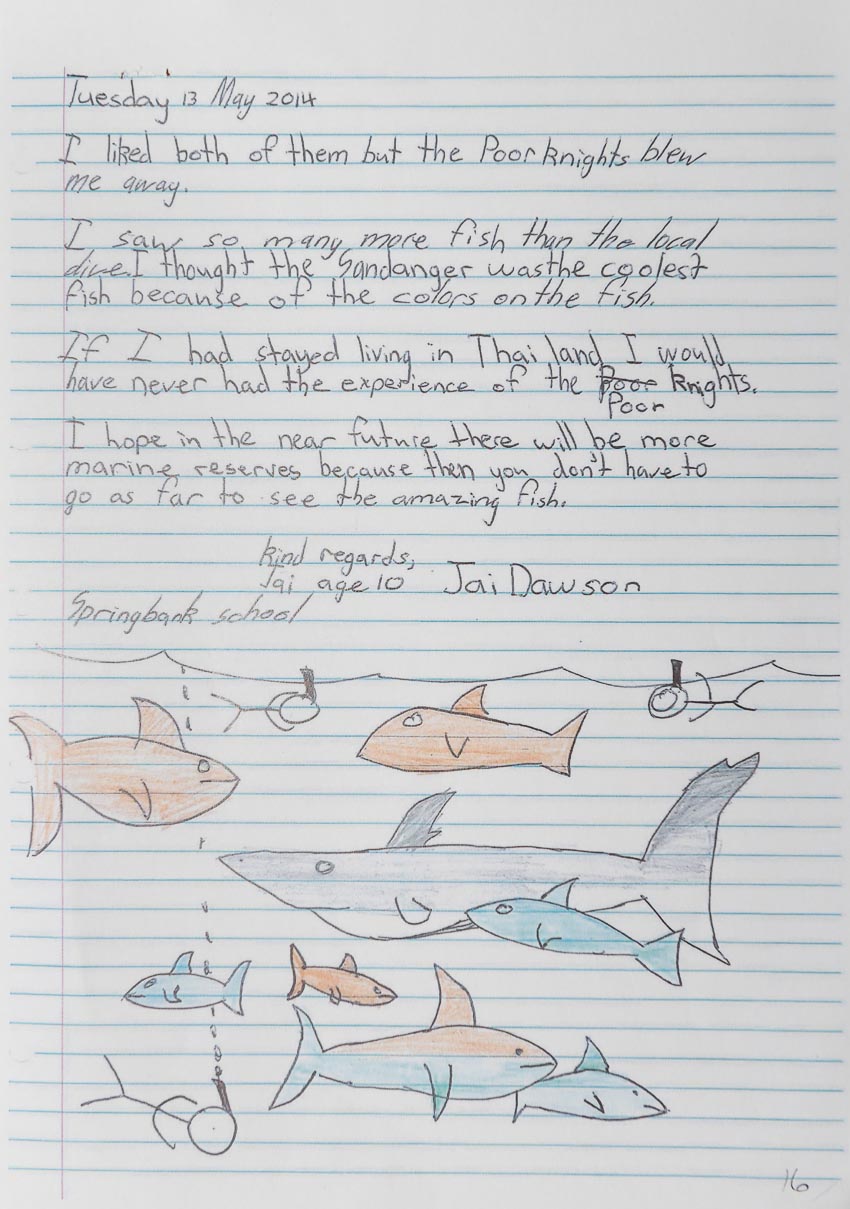 Tuesday 13 May 2014
I liked both of them but the Poor knights blew
me away.
I saw so many more fish than the local
dive. I thought the Sandanger was the coolest
fish because of the colors on the fish.
If I had stayed living in Thailand I would
have never had the experience of the Poor knights.
Poor
I hope in the near future there will be more
marine reserves because then you don't have to
go as far to see the amazing fish.
kind regards,
Jai age 10 Jai Dawson
Springbank school
16